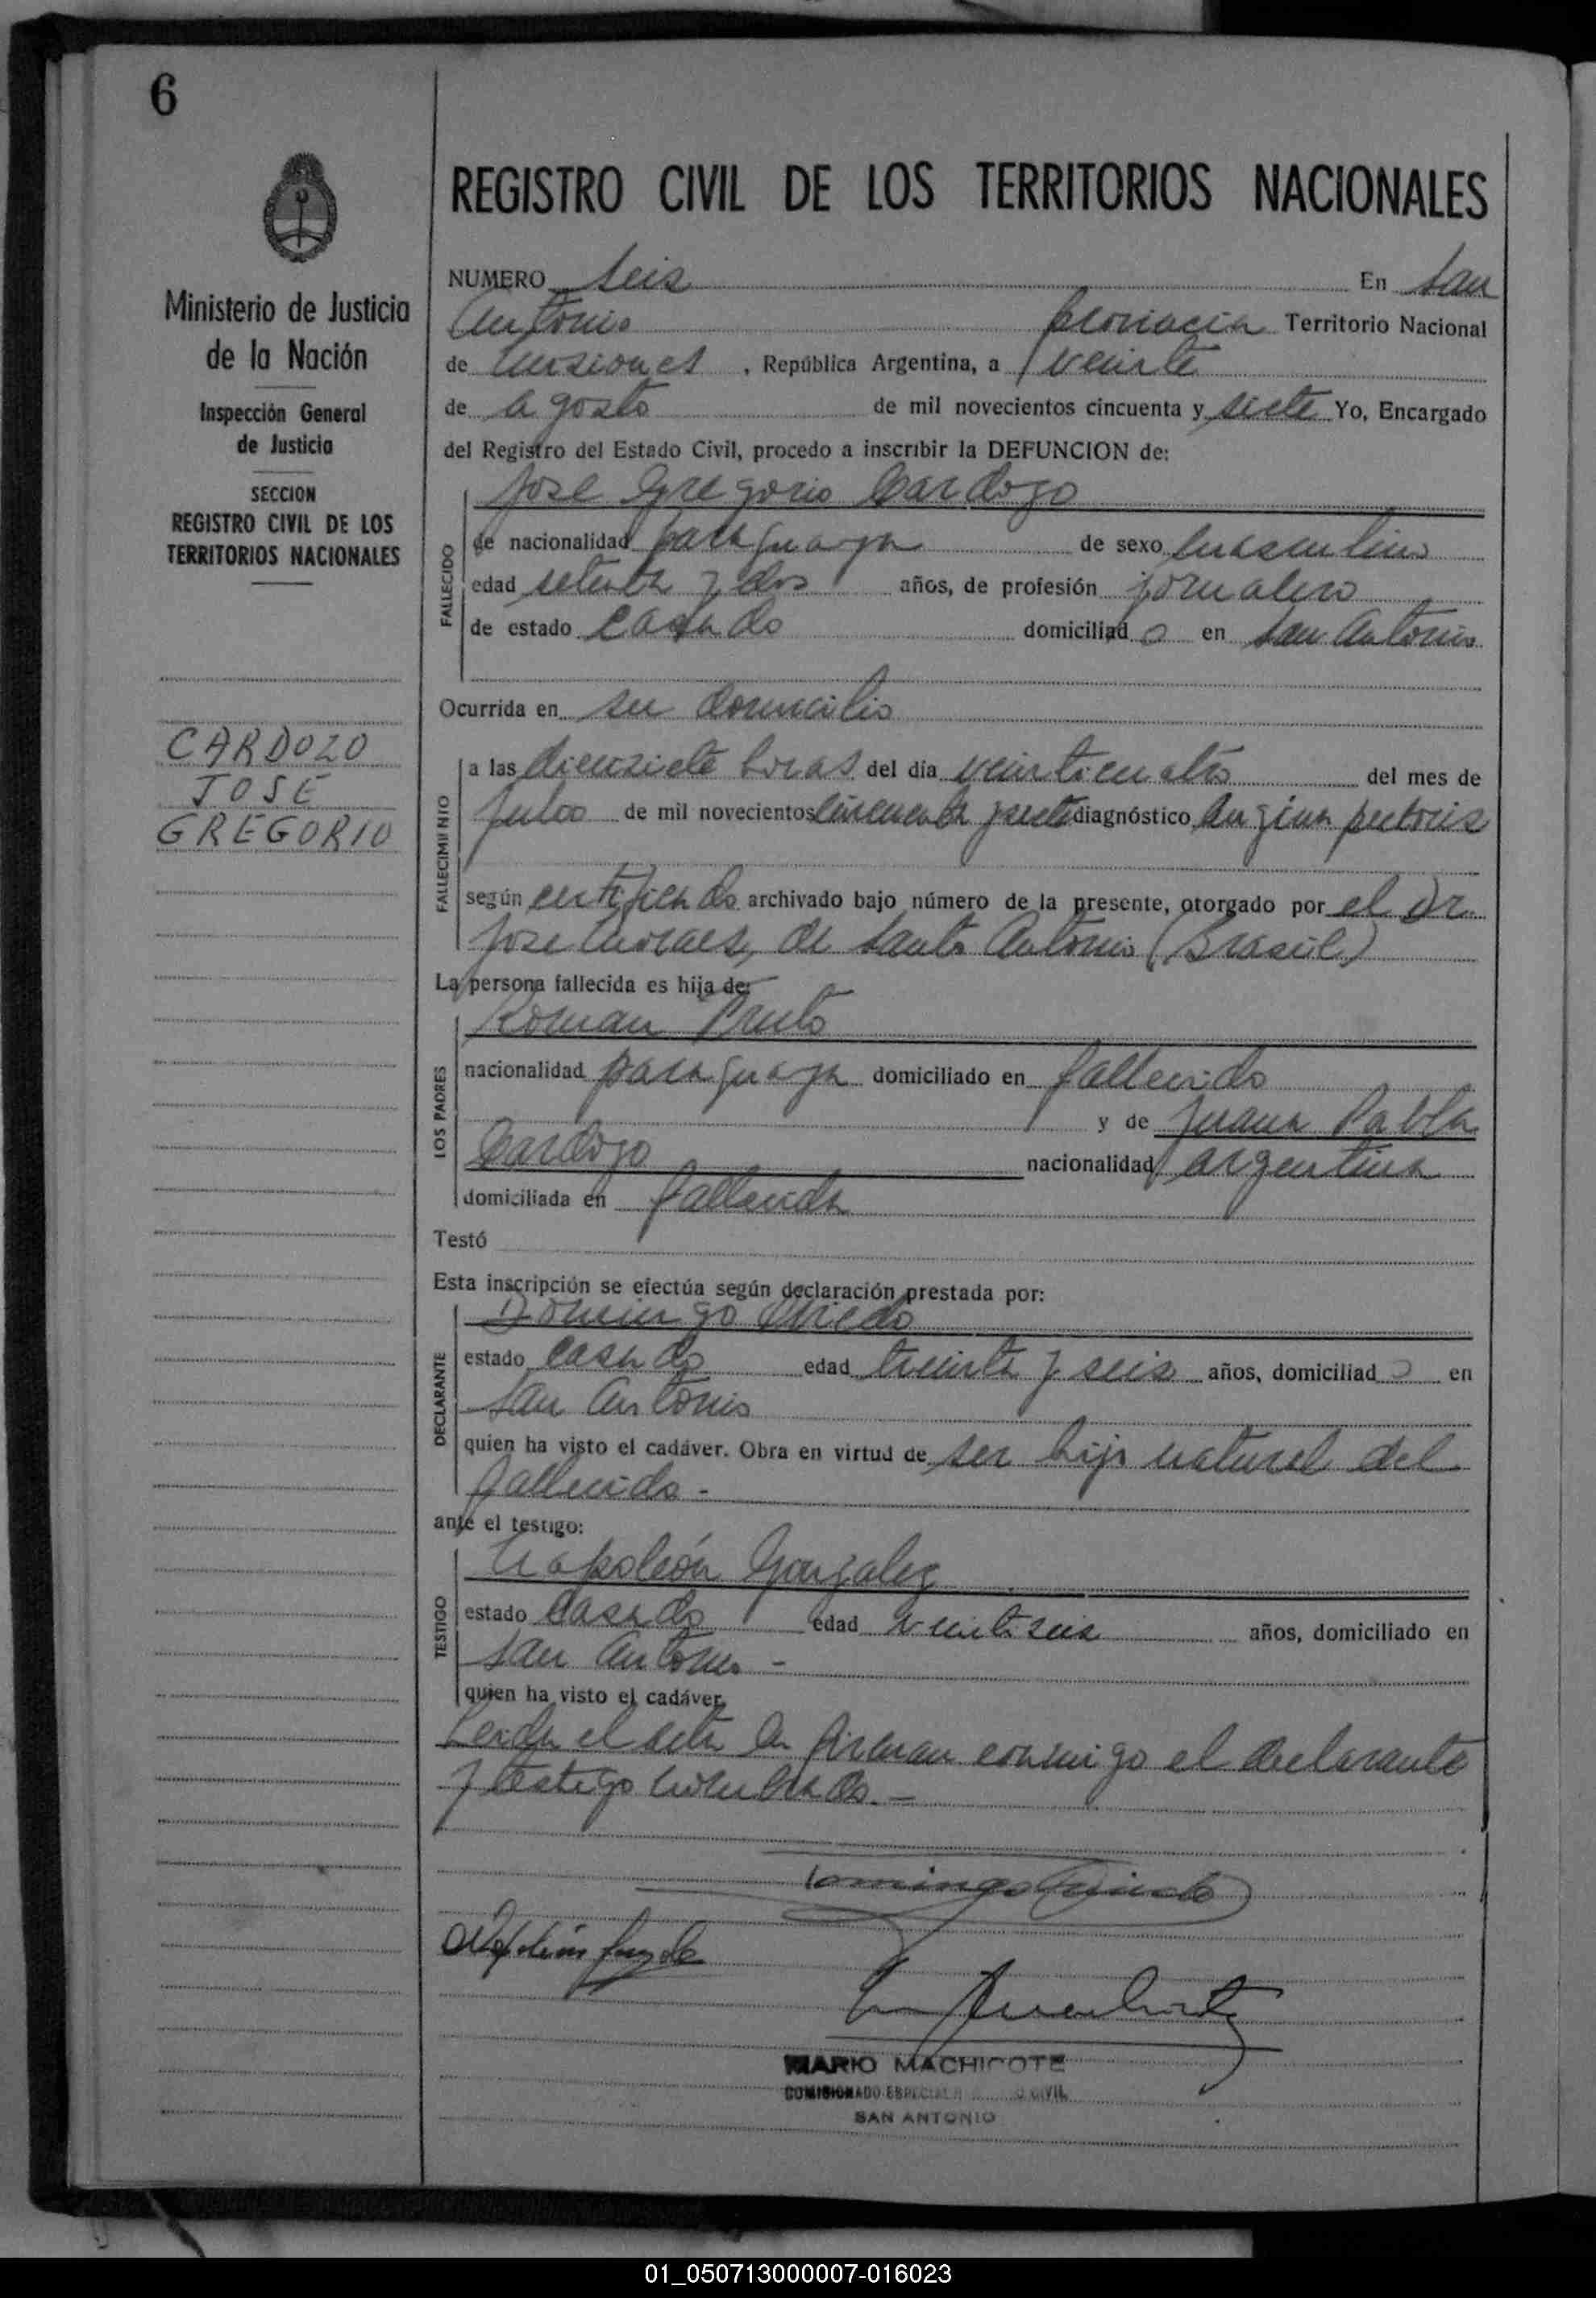 6
REGISTRO CIVIL DE LOS TERRITORIOS NACIONALES
Ministerio de Justicia
de la Nación
Inspección General
de Justicia
SECCION
REGISTRO CIVIL DE LOS
TERRITORIOS NACIONALES
CARDOZO
JOSE
GREGORIO
NUMERO seis En San
Antonio provincia Territorio Nacional
de Misiones, República Argentina, a veinte
de agosto de mil novecientos cincuenta y siete Yo, Encargado
del Registro del Estado Civil, procedo a inscribir la DEFUNCION de:
FALLECIDO
Jose Gregorio Cardozo
de nacionalidad paraguaya de sexo masculino
edad setenta y dos años, de profesión jornalero
de estado casado domiciliado en San Antonio
Ocurrida en su domicilio
FALLECIMIENTO
a las diecisiete horas del día veinticuatro del mes de
julio de mil novecientos cincuenta y siete diagnóstico Angina pectoris
según certificado archivado bajo número de la presente, otorgado por el Dr.
Jose Moraes, de Santo Antonio (Brasil)
La persona fallecida es hija de:
LOS PADRES
Roman
nacionalidad paraguaya domiciliado en fallecido
y de Juana Pabla
Cardozo nacionalidad argentina
domiciliada en fallecida
Testó
Esta inscripción se efectúa según declaración prestada por:
DECLARANTE
Domingo
estado casado edad treinta y seis años, domiciliado en
San Antonio
quien ha visto el cadáver. Obra en virtud de ser hijo natural del
fallecido.-
ante el testigo:
TESTIGO
Napoleón Gonzalez
estado casado edad veintiseis años, domiciliado en
San Antonio -
quien ha visto el cadáver.
Leida el acta la firman conmigo el declarante
y testigo nombrado.-
Domingo
MARIO MACHICOTE
COMISIONADO ESPECIAL CIVIL
SAN ANTONIO
01_050713000007-016023